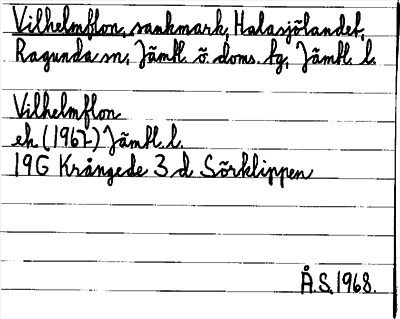 Vilhelmflon, sankmark, Halasjölandet,
Ragunda sn, Jämtl. ö. doms. tg, Jämtl. l.
Vilhelmflon
ek (1967) Jämtl. l.
19G Krångede 3 d Sörklippen
Å.S. 1968.